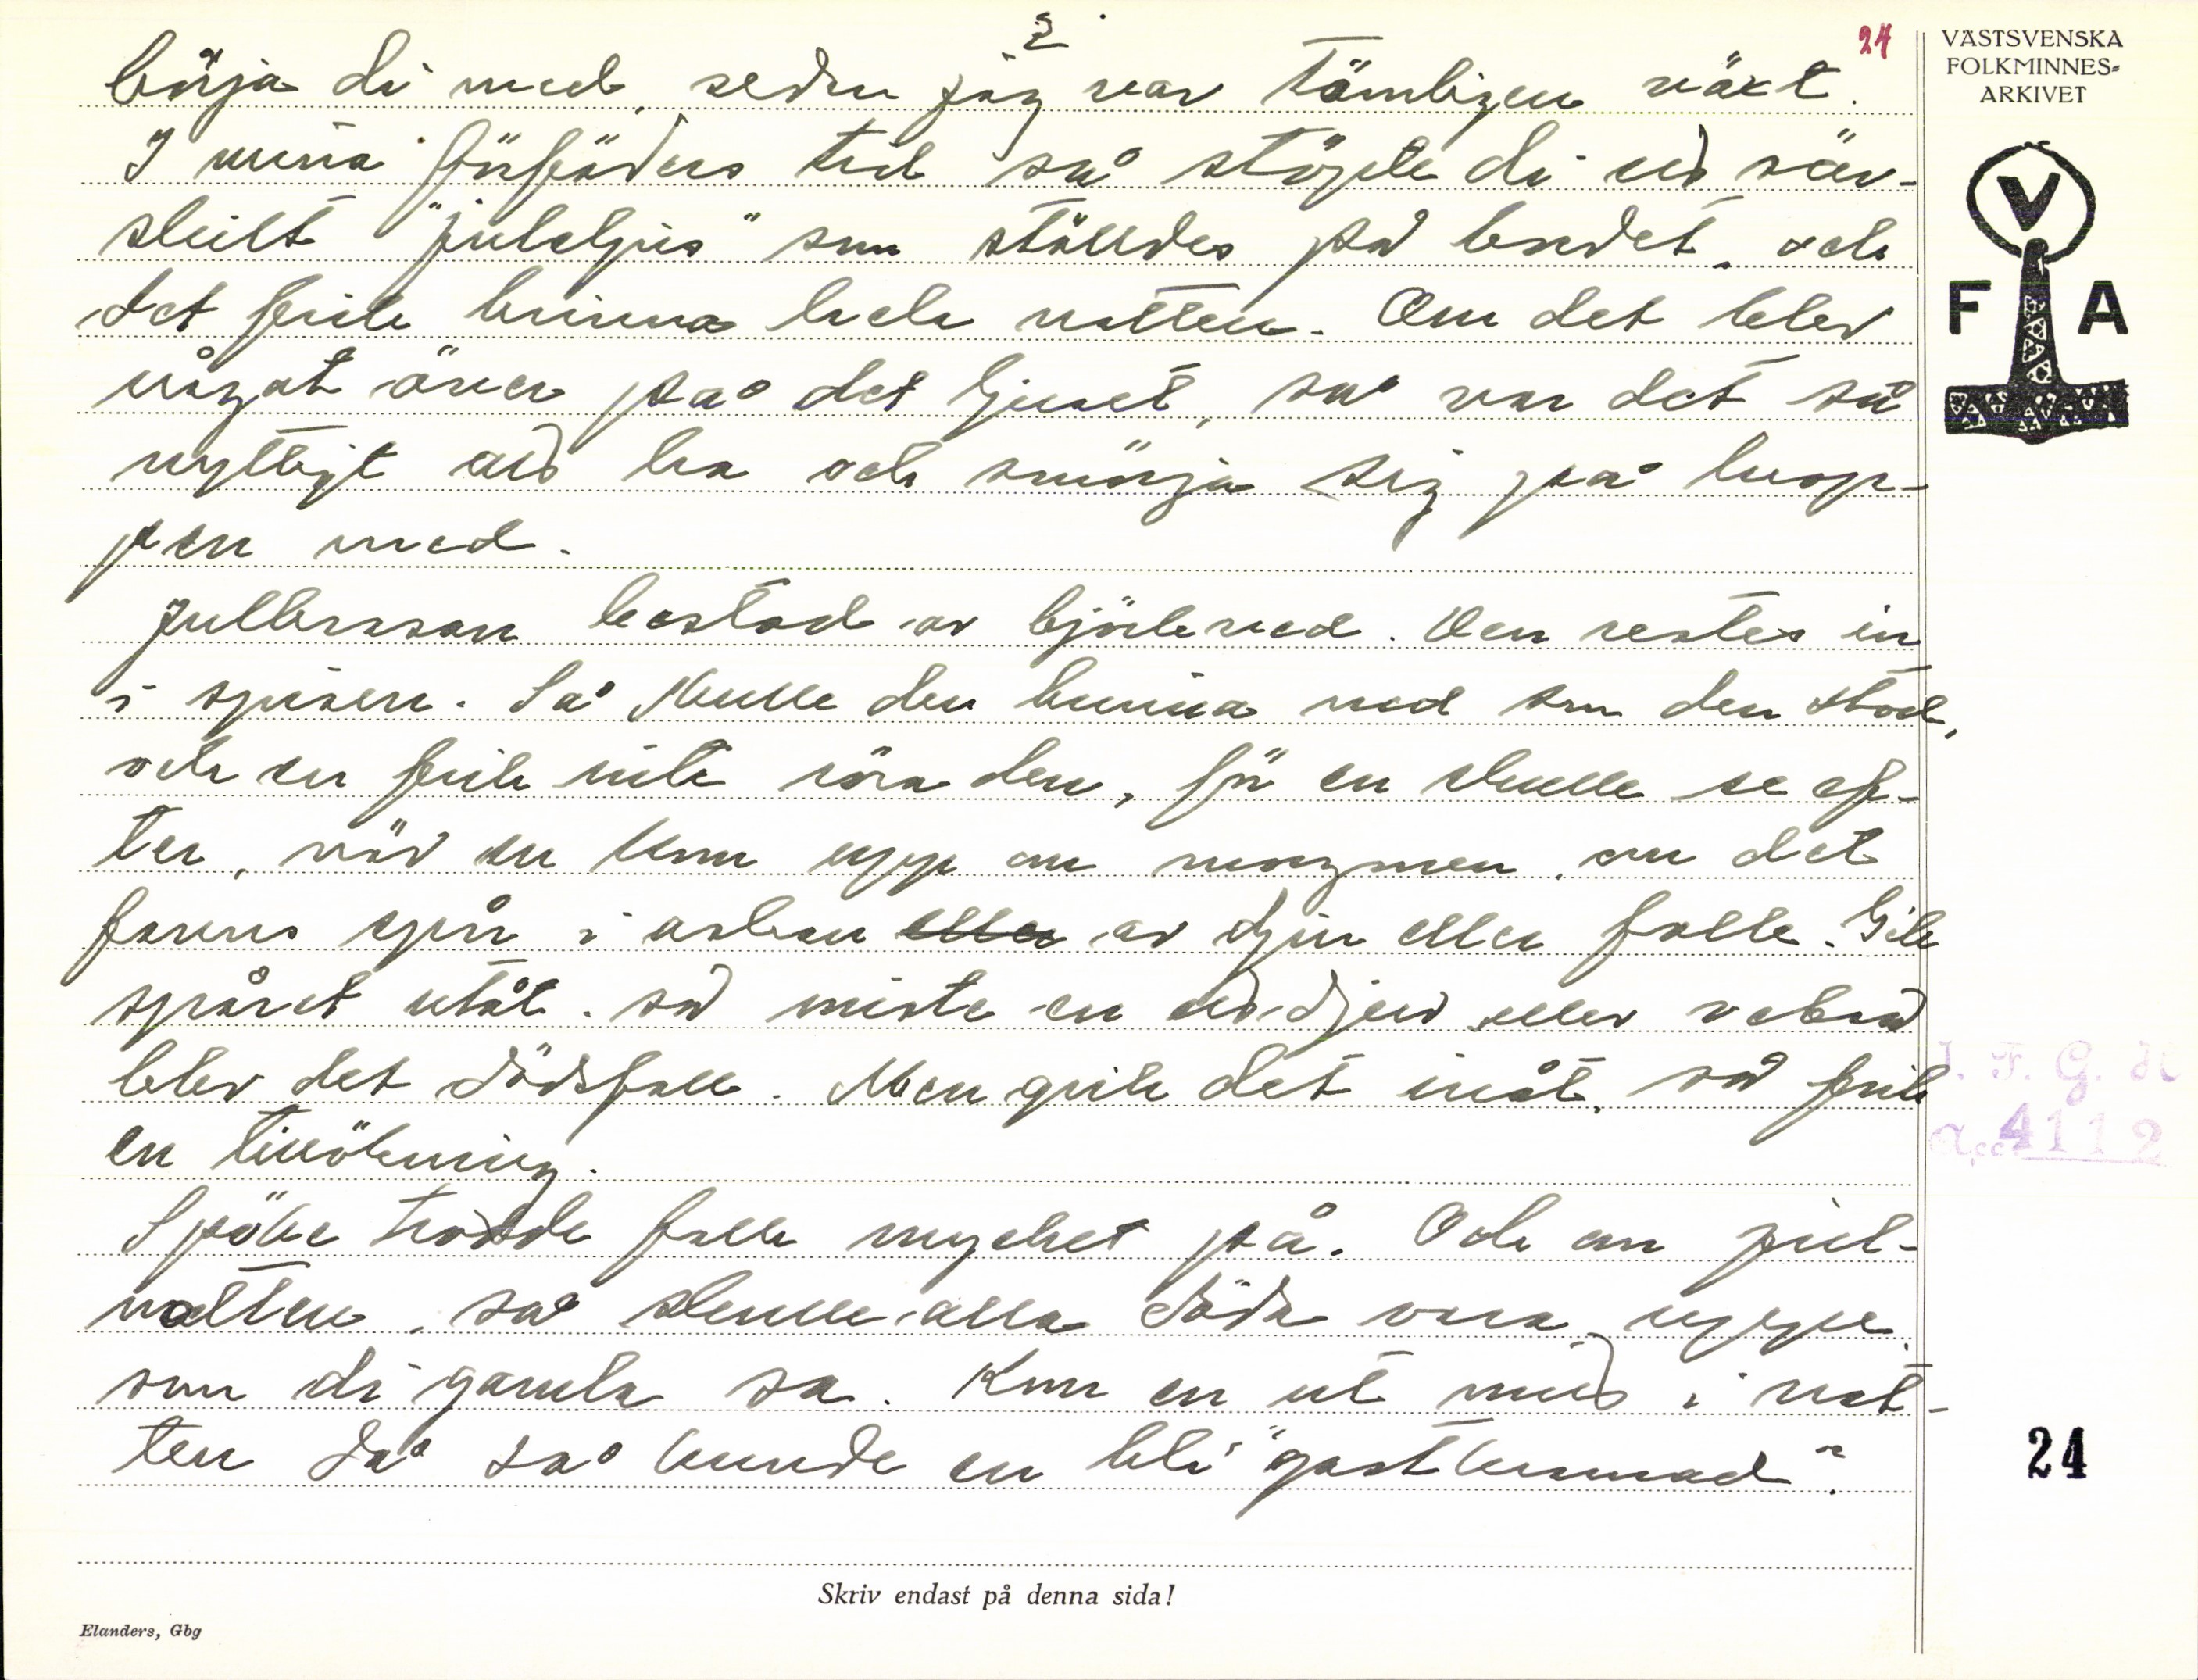 2
24
VÄSTSVENSKA
FOLKMINNES-
ARKIVET
V
F A
börja di med, sedan jag var tämligen växt.
I mina förfäders tid så stöpte di ett sär-
skilt "juleljus" som ställdes på bordet, och
det fick brinna hela natten. Om det blev
något över på det ljuset, så var det så
nyttigt att ha och smörja sig på krop-
pen med.
Julbrasan bestod av björkved. Den restes in
i spisen. Så skulle den brinna ned som den stod,
och en fick inte röra den, för en skulle se ef-
ter, när en kom upp om morgonen, om det
fanns spår i askan eller av djur eller folk. Gick
spåret utåt, så miste en ett djur eller också
blev det dödsfall. Men gick det inåt, så fick
en tillökning.
Spöke trodde folk mycket på. Och om jul-
natten, så skulle alla döda vara uppe,
som di gamla sa. Kom en ut mitt i nat-
ten då så kunde en bli "gastkramad".
J. F. G. H
acc 4112
24
Skriv endast på denna sida!
Elanders, Gbg